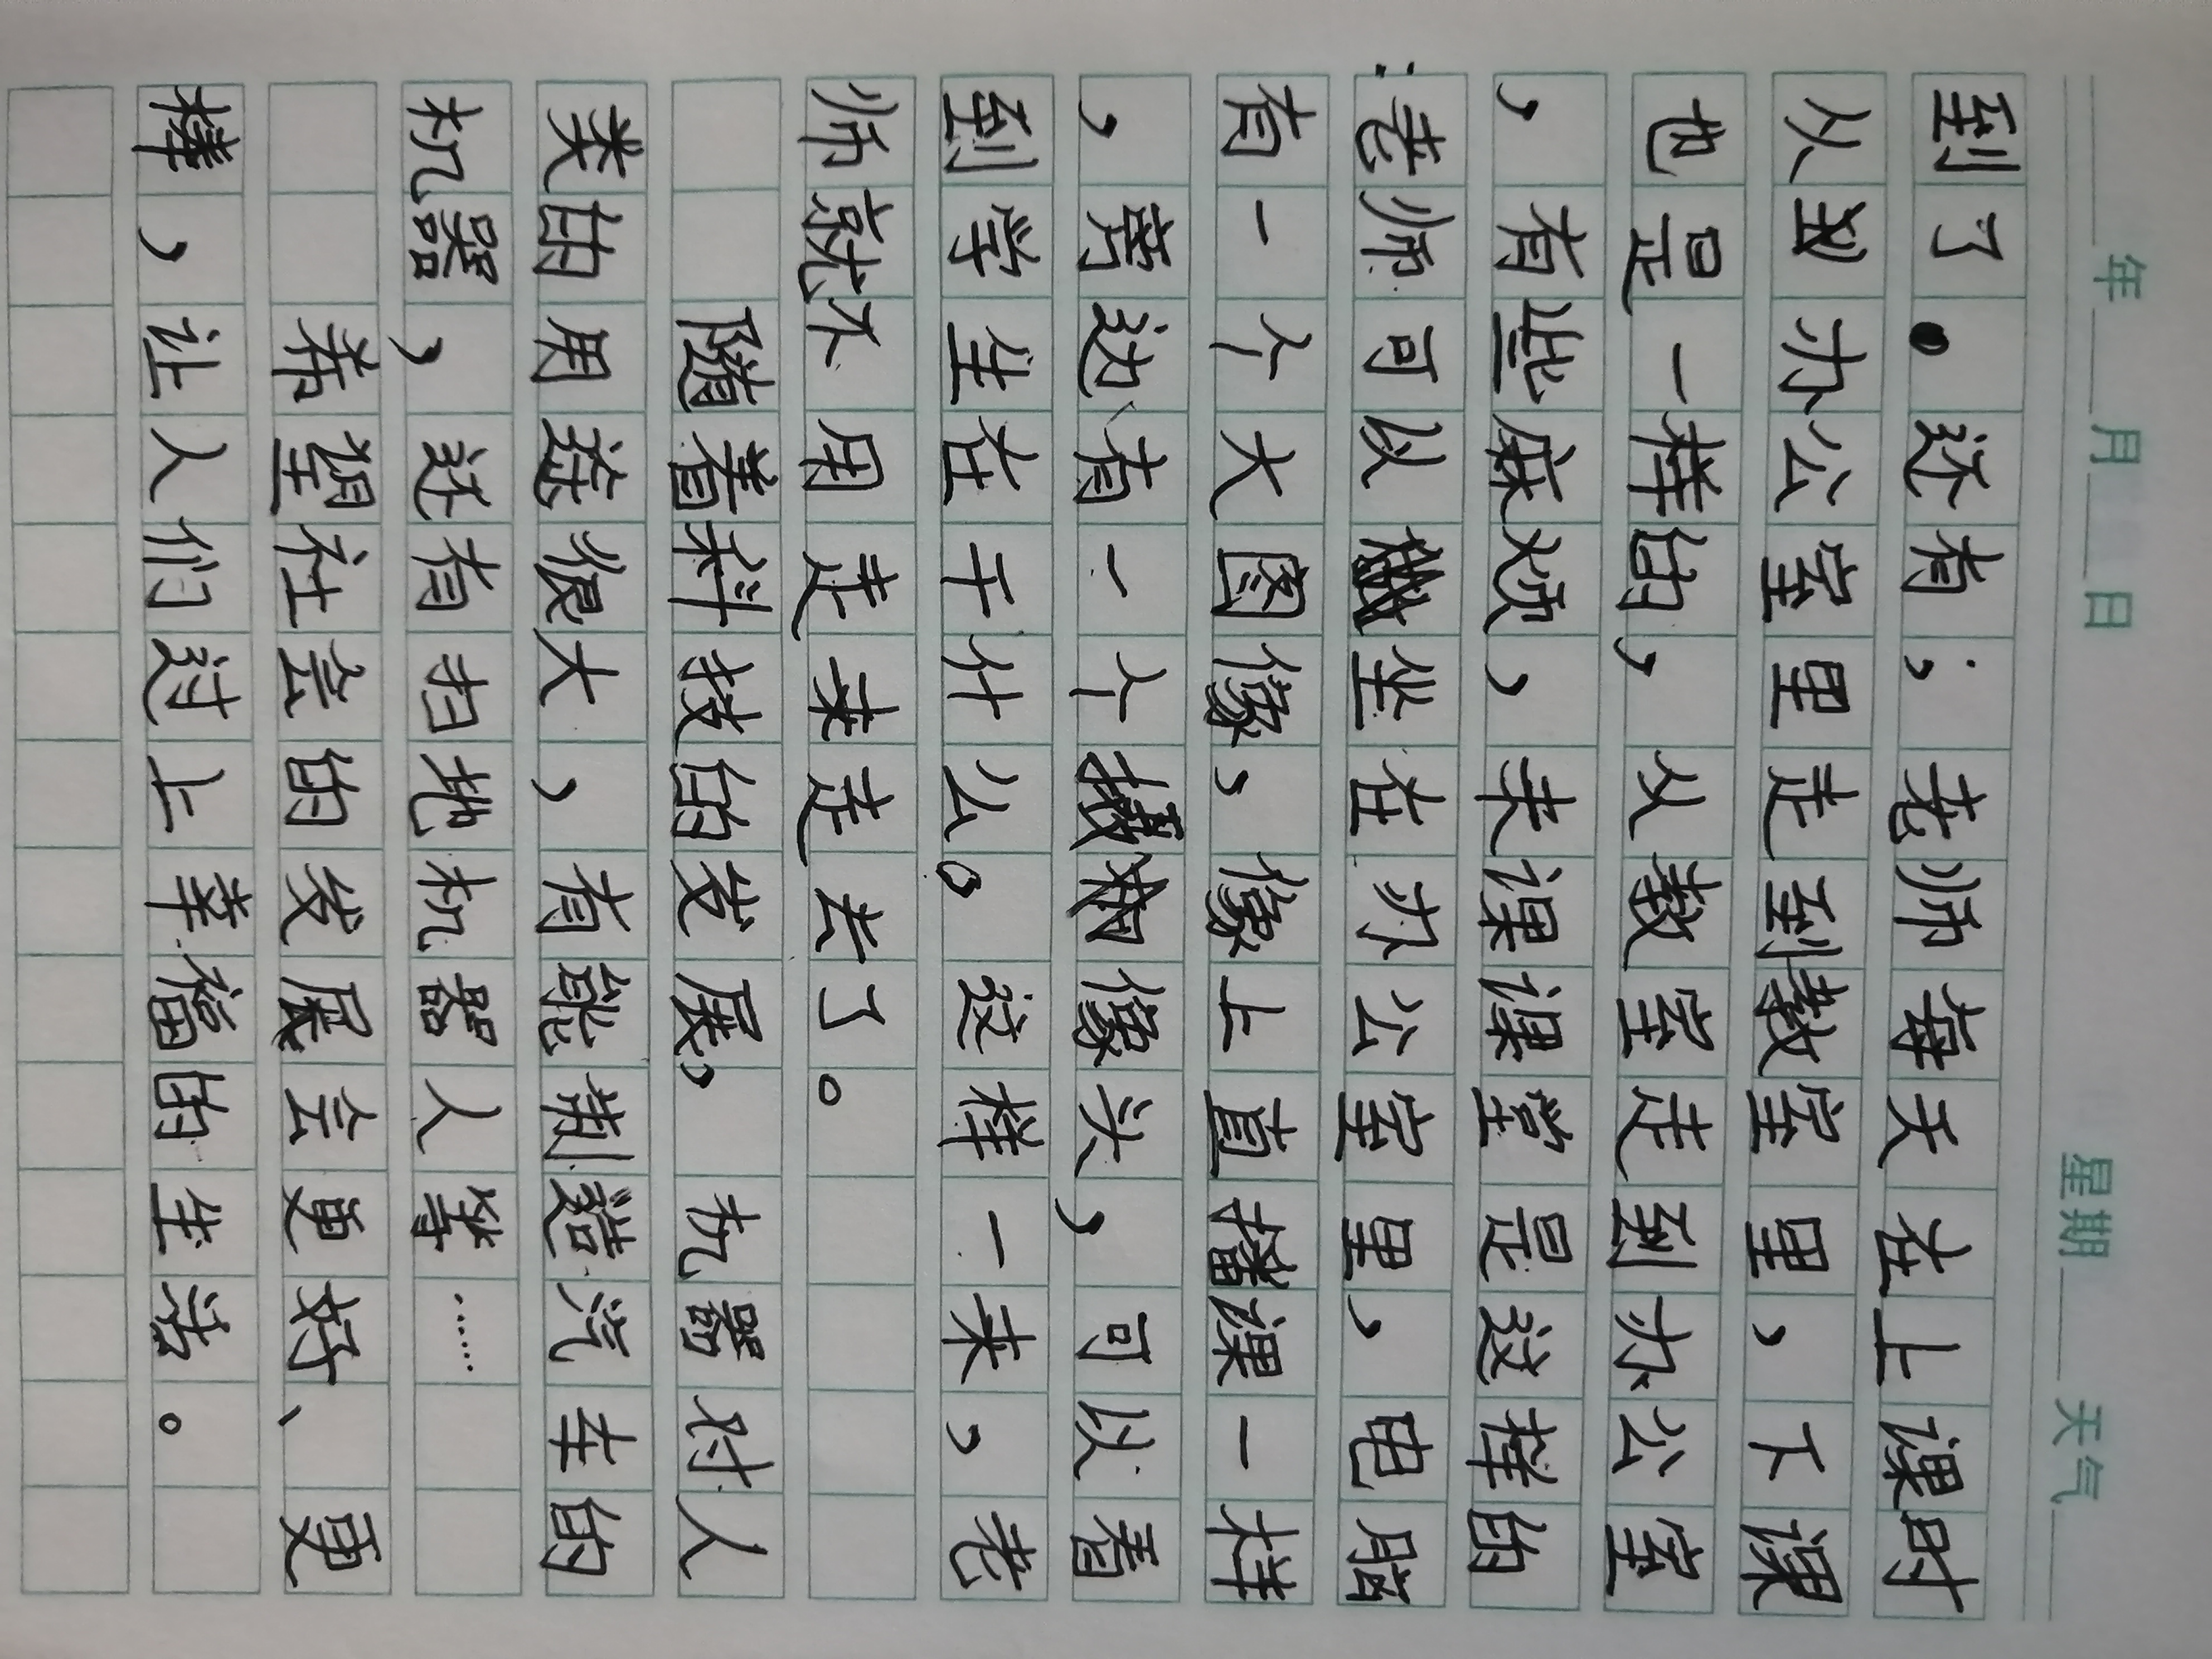 年 月 日 星期 天气
到了。还有;老师每天在上课时
从办公室里走到教室里,下课
也是一样的,从教室走到办公室
,有些麻烦,未课课堂是这样的
:老师可以坐在办公室里,电脑
有一个大图像,像上直播课一样
,旁边有一个摄像头,可以看
到学生在干什么。这样一来,老
师就不用走来走去了。
随着科技的发展,机器对人
类的用途很大,有能制造汽车的
机器,还有扫地机器人等……
希望社会的发展会更好、更
棒,让人们过上幸福的生活。